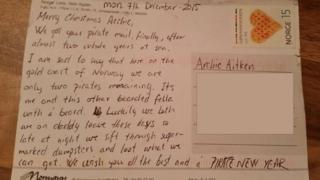 mon 7th December 2015
Merry Christmas Archie,
We got your pirate mail, finally, after
almost two whole years at sea.
I am sad to say that here on the
gold coast of Norway we are
only two pirates remaining. Its
me and this other bearded fella
with a beard. Luckily we both
are on ebodily leave these days so
late at night we sift through super-
marked dumpsters and loot what we
can get. We wish you all the best and a PIRATE NEW YEAR
NORGE 15
Archie Aitken
Norway